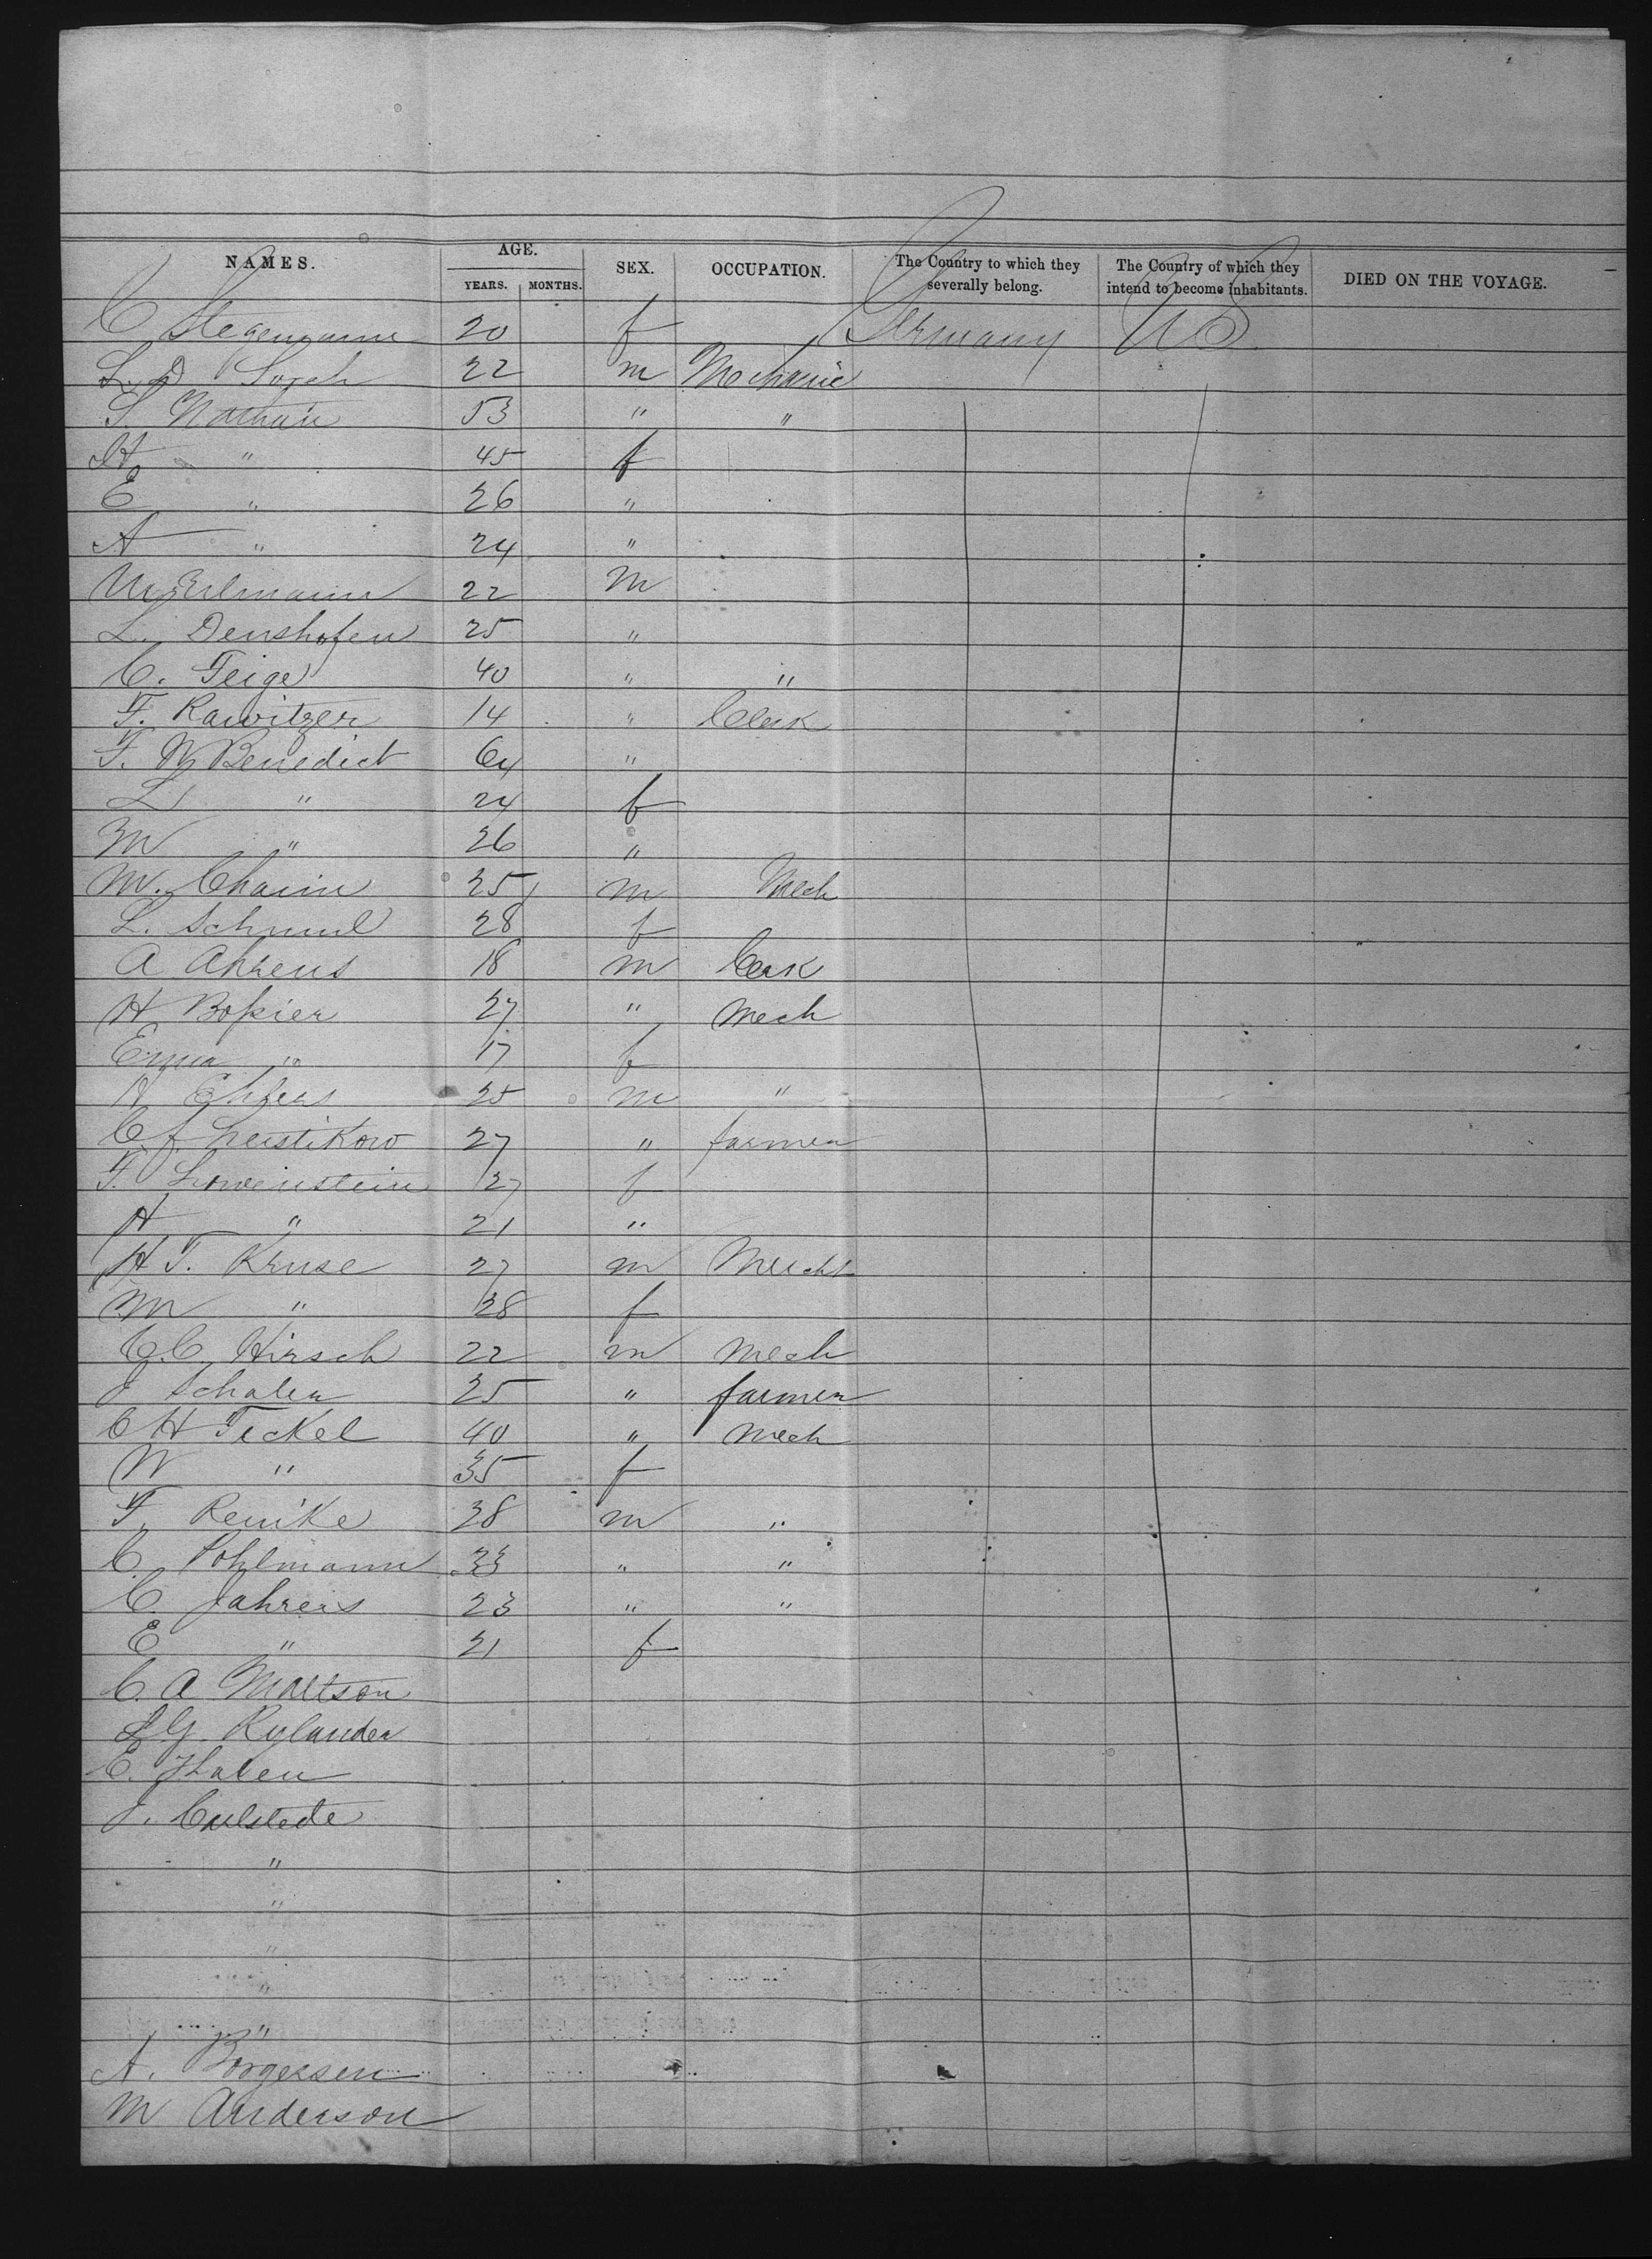 NAMES. AGE. SEX. OCCUPATION. The Country to which they severally belong. The Country of which they intend to become inhabitants. DIED ON THE VOYAGE.
YEARS. MONTHS.
C Stegemann 20 f Germany U S
L. D Sorch 22 m Mechanic
S. Nathan 53 " "
H. " 45 f
E " 26 "
A " 24 "
M. Erlmann 22 m
L. Denshofen 25 "
C. Feige 40 " "
F. Rawitzer 14 " Clerk
F. W Benedict 64 "
L " 24 f
M " 26 "
M. Chaim 25 m Mech
L. Schmul 28 f
A Ahrens 18 m Clerk
H Bossier 27 " Mech
Emma " 17 f
H Ehlers 25 m "
C. f. Leistikow 27 " farmer
F. Lowenstein 27 f
H " 21 "
H F. Kruse 27 m Mercht
M " 28 f
C. C. Hirsch 22 m Mech
J Schaler 25 " farmer
C H Feckel 40 " Mech
W " 35 f
F. Renike 28 m "
C. Pohlmann 33 " "
C. Jahreis 23 " "
E " 21 f
C. A Mattson
L G. Rylander
E. Thalen
J. Carlstede
"
"
"
"
"
A. Borgersen
M Anderson